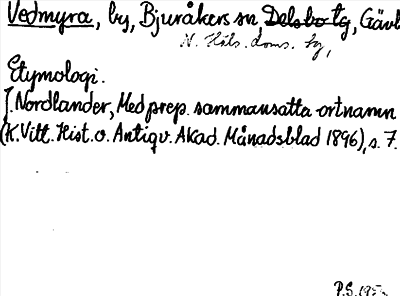 Vedmyra, by, Bjuråkers sn Delsbo tg, Gävl
N. Häls. doms. tg,
Etymologi.
J. Nordlander, Med prep. sammansatta ortnamn
(K. Vitt. Hist. o. Antiqv. Akad. Månadsblad 1896), s. 7.
P.S.